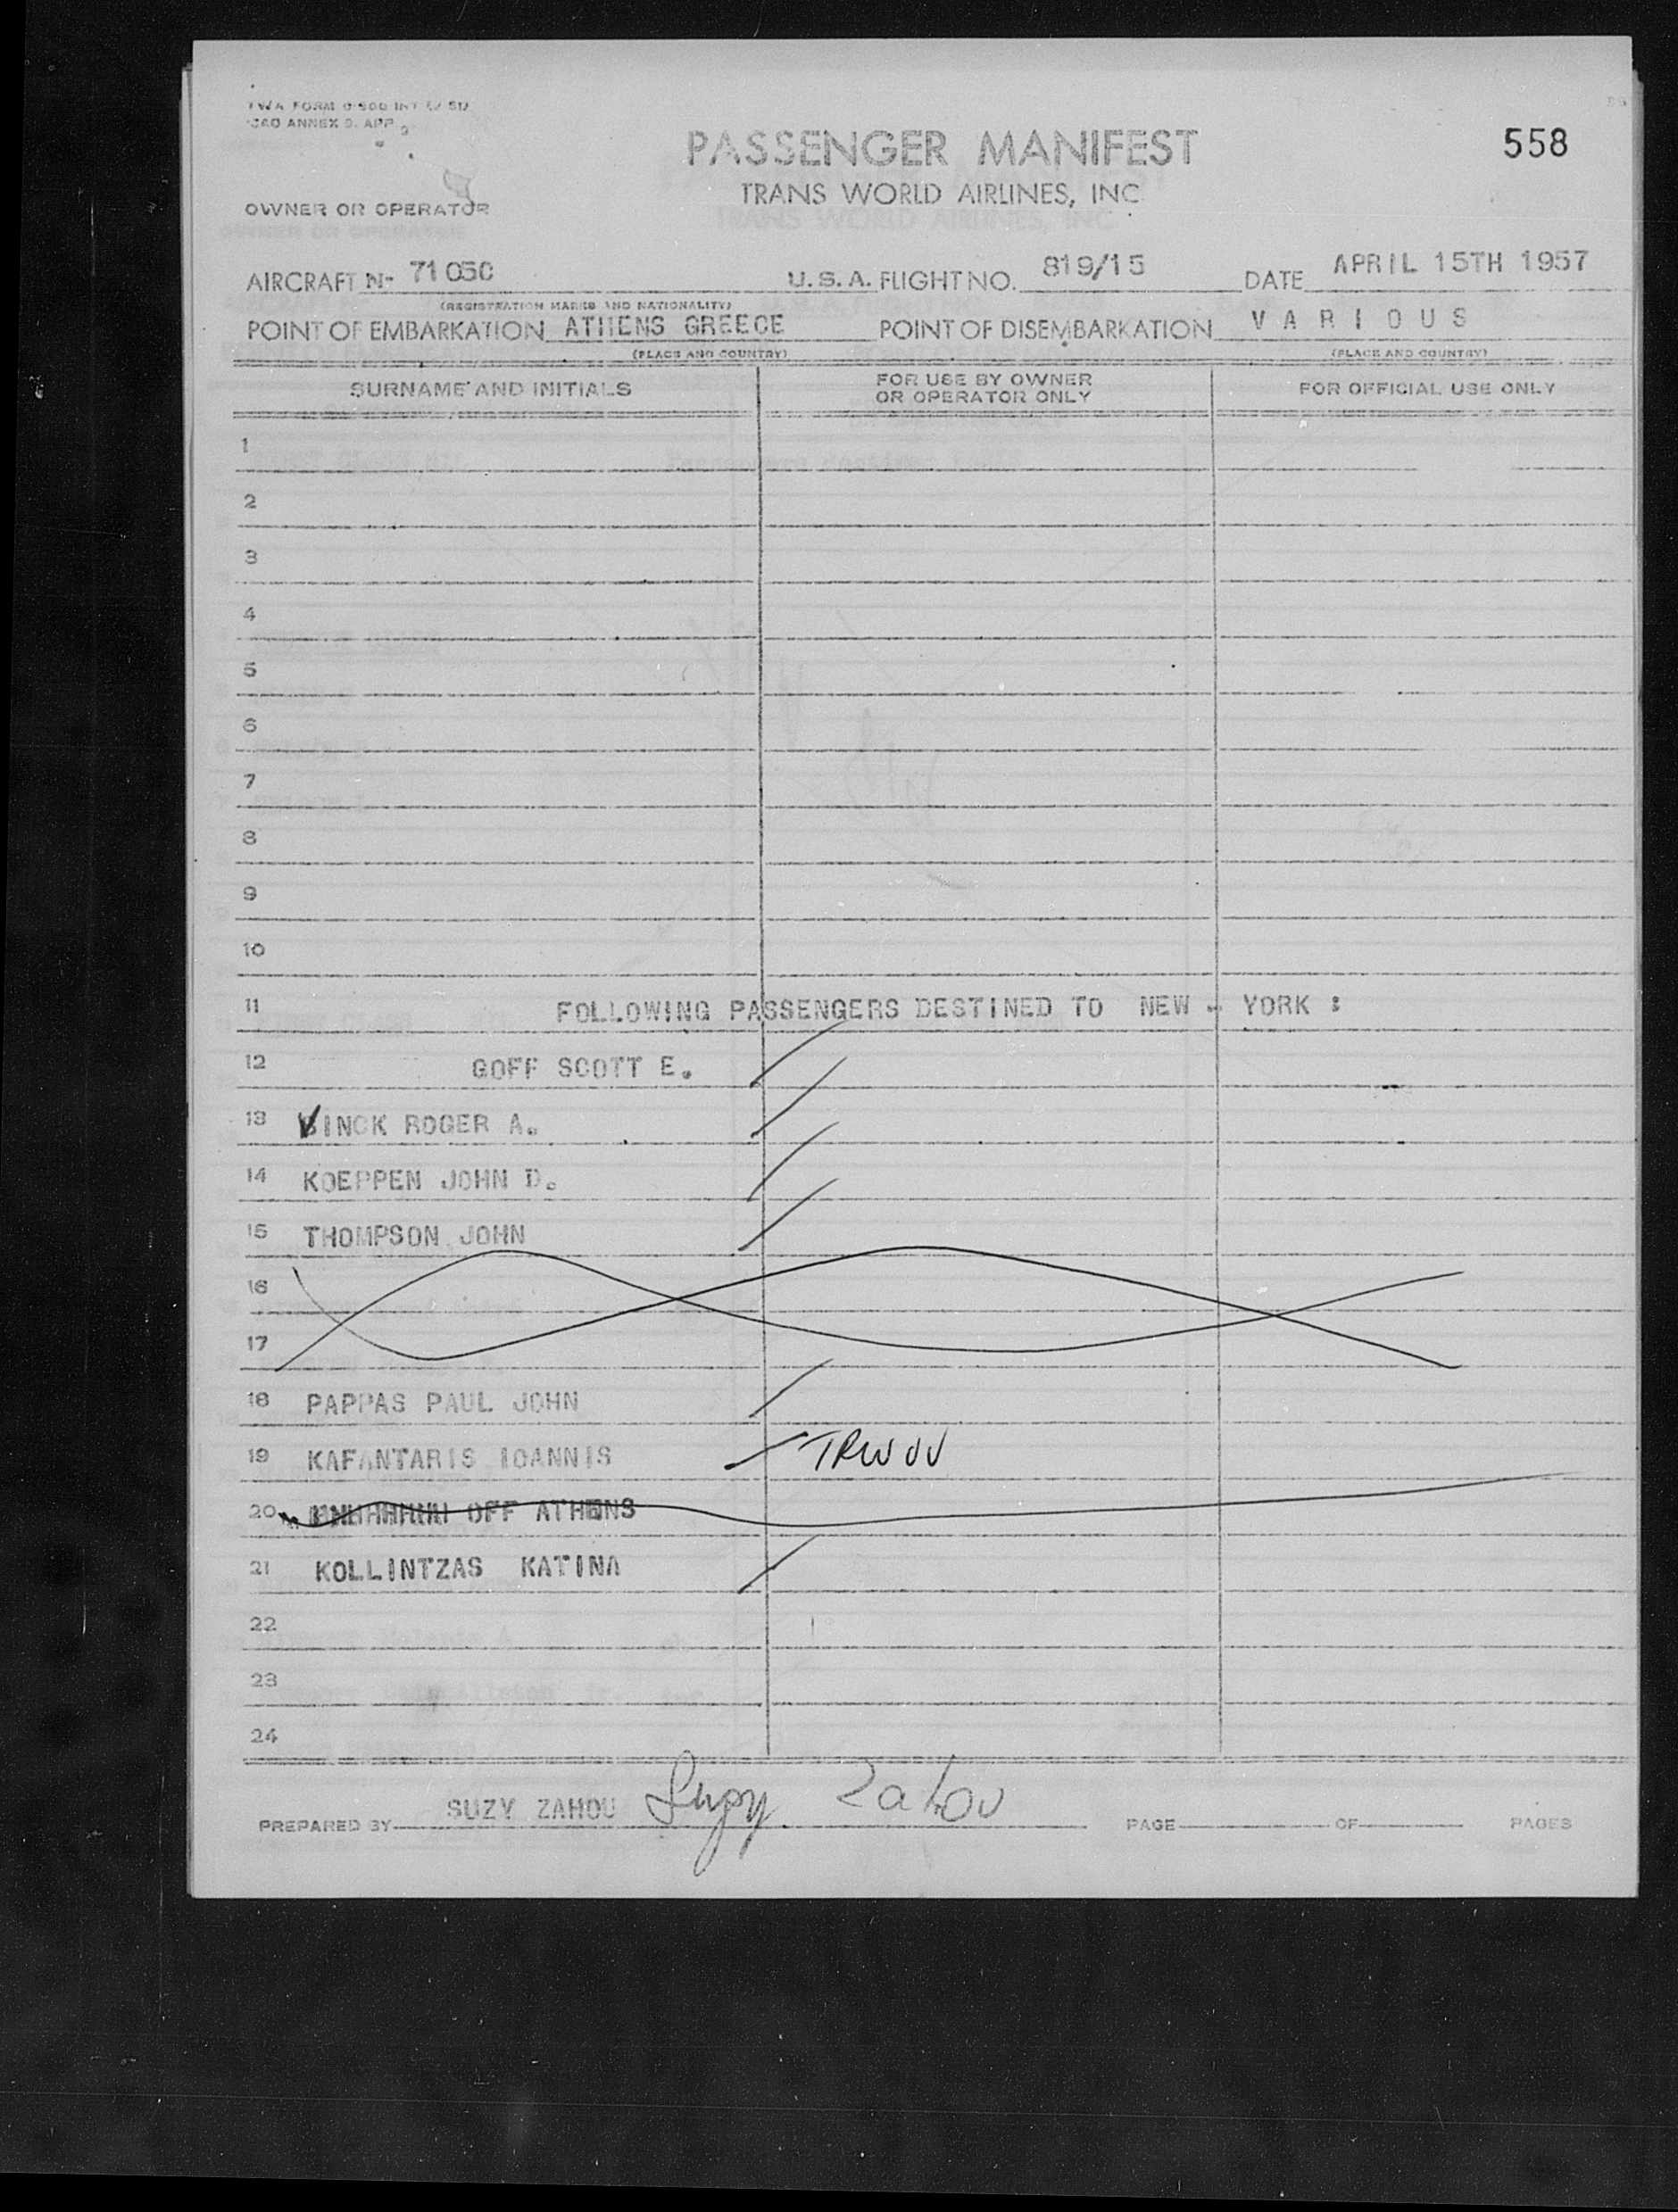 TWA FORM
ICAO ANNEX 9. APP
PASSENGER MANIFEST
558
TRANS WORLD AIRLINES, INC
OWNER OR OPERATOR
AIRCRAFT N- 71050 U.S.A. FLIGHT NO. 819/15 DATE APRIL 15TH 1957
(REGISTRATION MARKS AND NATIONALITY)
POINT OF EMBARKATION ATHENS GREECE POINT OF DISEMBARKATION V A R I O U S
(PLACE AND COUNTRY) (PLACE AND COUNTRY)
SURNAME AND INITIALS FOR USE BY OWNER OR OPERATOR ONLY FOR OFFICIAL USE ONLY
1
2
3
4
5
6
7
8
9
10
11 FOLLOWING PASSENGERS DESTINED TO NEW - YORK :
12 GOFF SCOTT E.
13 VINCK ROGER A.
14 KOEPPEN JOHN D.
15 THOMPSON JOHN
16
17
18 PAPPAS PAUL JOHN
19 KAFANTARIS IOANNIS
20 OFF ATHENS
21 KOLLINTZAS KATINA
22
23
24
PREPARED BY SUZY ZAHOU Suzy Zahou PAGE OF PAGES